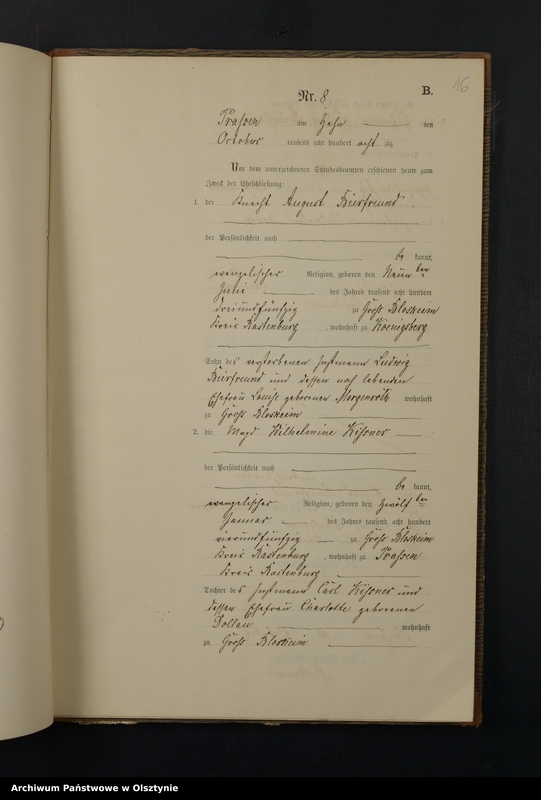 16
B.
Nr. 8
am Zehn ten
October tausend acht hundert acht zig
Vor dem unterzeichneten Standesbeamten erschienen heute zum
Zweck der Eheschließung:
1. der Knecht August Bierfreund
der Persönlichkeit nach
be kannt,
evangelischer Religion, geboren den Neun ten
Juni des Jahres tausend acht hundert
dreiundfünfzig zu Groß Bloskeim
Kreis Rastenburg, wohnhaft zu Koenigsberg
Sohn des verstorbenen Instmann Ludwig
Bierfreund und dessen noch lebenden
Ehefrau Louise geborenen Morgenroth wohnhaft
zu Groß Bloskeim
2. die Magd Wilhelmine
der Persönlichkeit nach
be kannt,
evangelischer Religion, geboren den zwölf ten
Januar des Jahres tausend acht hundert
vierundfünfzig zu Groß Bloskeim
Kreis Rastenburg, wohnhaft zu
Kreis Rastenburg
Tochter des Instmann Carl und
dessen Ehefrau Charlotte geborenen
Dollau wohnhaft
zu Groß Bloskeim
Archiwum Państwowe w Olsztynie